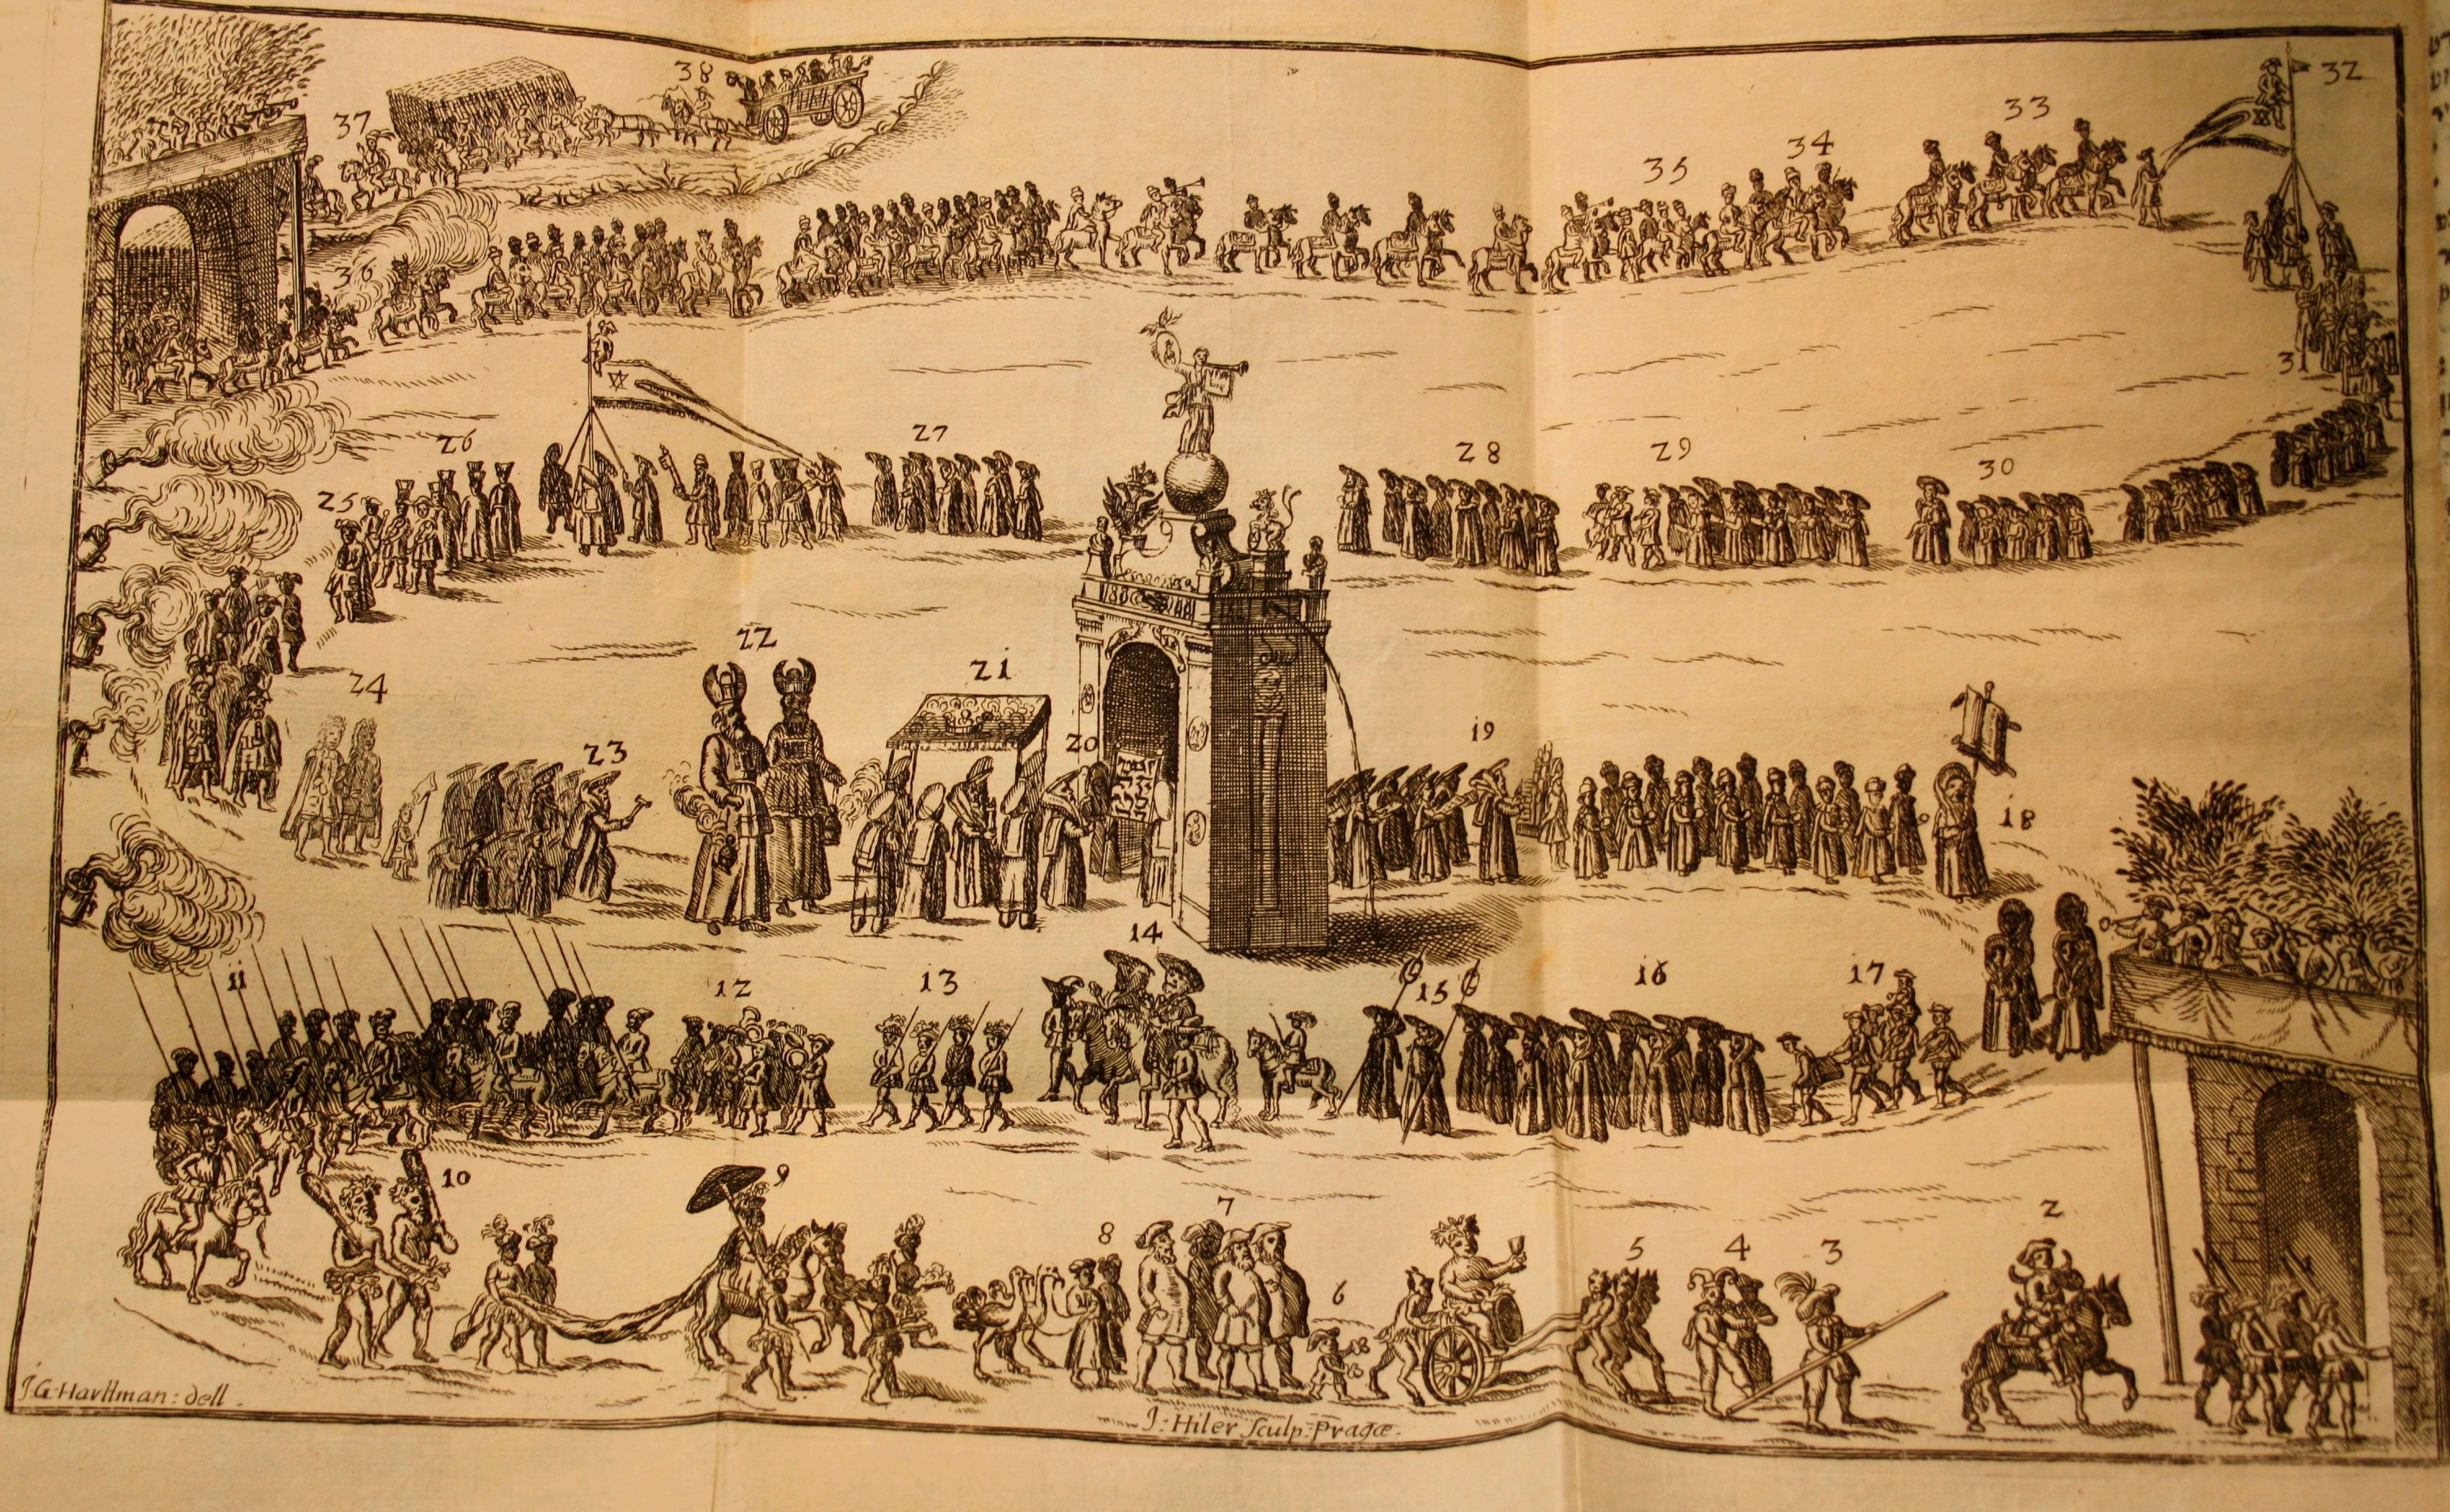 38
32
37
33
34
35
36
31
26
27
28
29
30
25
22
21
24
23
20
19
18
14
11
12
13
15
16
17
10
9
8
7
6
5
4
3
2
J. G. Harttman: dell.
J: Hiler Sculp: Pragæ.